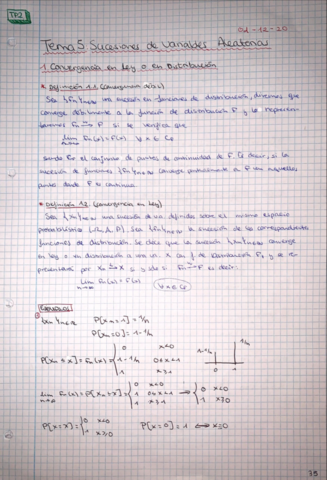 TP2
01-12-20
Tema 5 Sucesiones de Variables Aleatorias
1. Convergencia en Ley o en Distribución
* Definición 1.1 (Convergencia débil)
Sea {Fn}n∈N una sucesión de funciones de distribución, diremos que
converge débilmente a la función de distribución F y lo
si se verifica que
lim Fn(x) = F(x) ∀x ∈ CF
n→∞
siendo CF el conjunto de puntos de continuidad de F. Es decir, si la
sucesión de funciones {Fn}n∈N converge puntualmente a F en aquellos
puntos donde F es continua.
* Definición 1.2 (Convergencia en Ley)
Sea {Xn}n∈N una sucesión de v.a. definidas sobre el mismo espacio
probabilístico (Ω, A, P). Sea {Fn}n∈N la sucesión de las correspondientes
funciones de distribución. Se dice que la sucesión {Xn}n∈N converge
en ley o en distribución a una v.a. X con f. de distribución F, y se
por Xn → X si y sólo si Fn → F es decir:
lim Fn(x) = F(x) ∀x ∈ CF
n→∞
Ejemplos
① {Xn}n∈N P[Xn=1] = 1/n
P[Xn=0] = 1-1/n
P[Xn ≤ x] = Fn(x) = { 0 x<0
1-1/n 0≤x<1
1 x≥1
1-1/n 1/n
0 1
lim Fn(x) = P[Xn≤x] = { 0 x<0
n→∞ 1 0≤x<1
1 x≥1
⟺ { 0 x<0
1 x≥0
P[X=x] = { 0 x<0
1 x≥0
P[X=0] = 1 ⟺ x=0
79